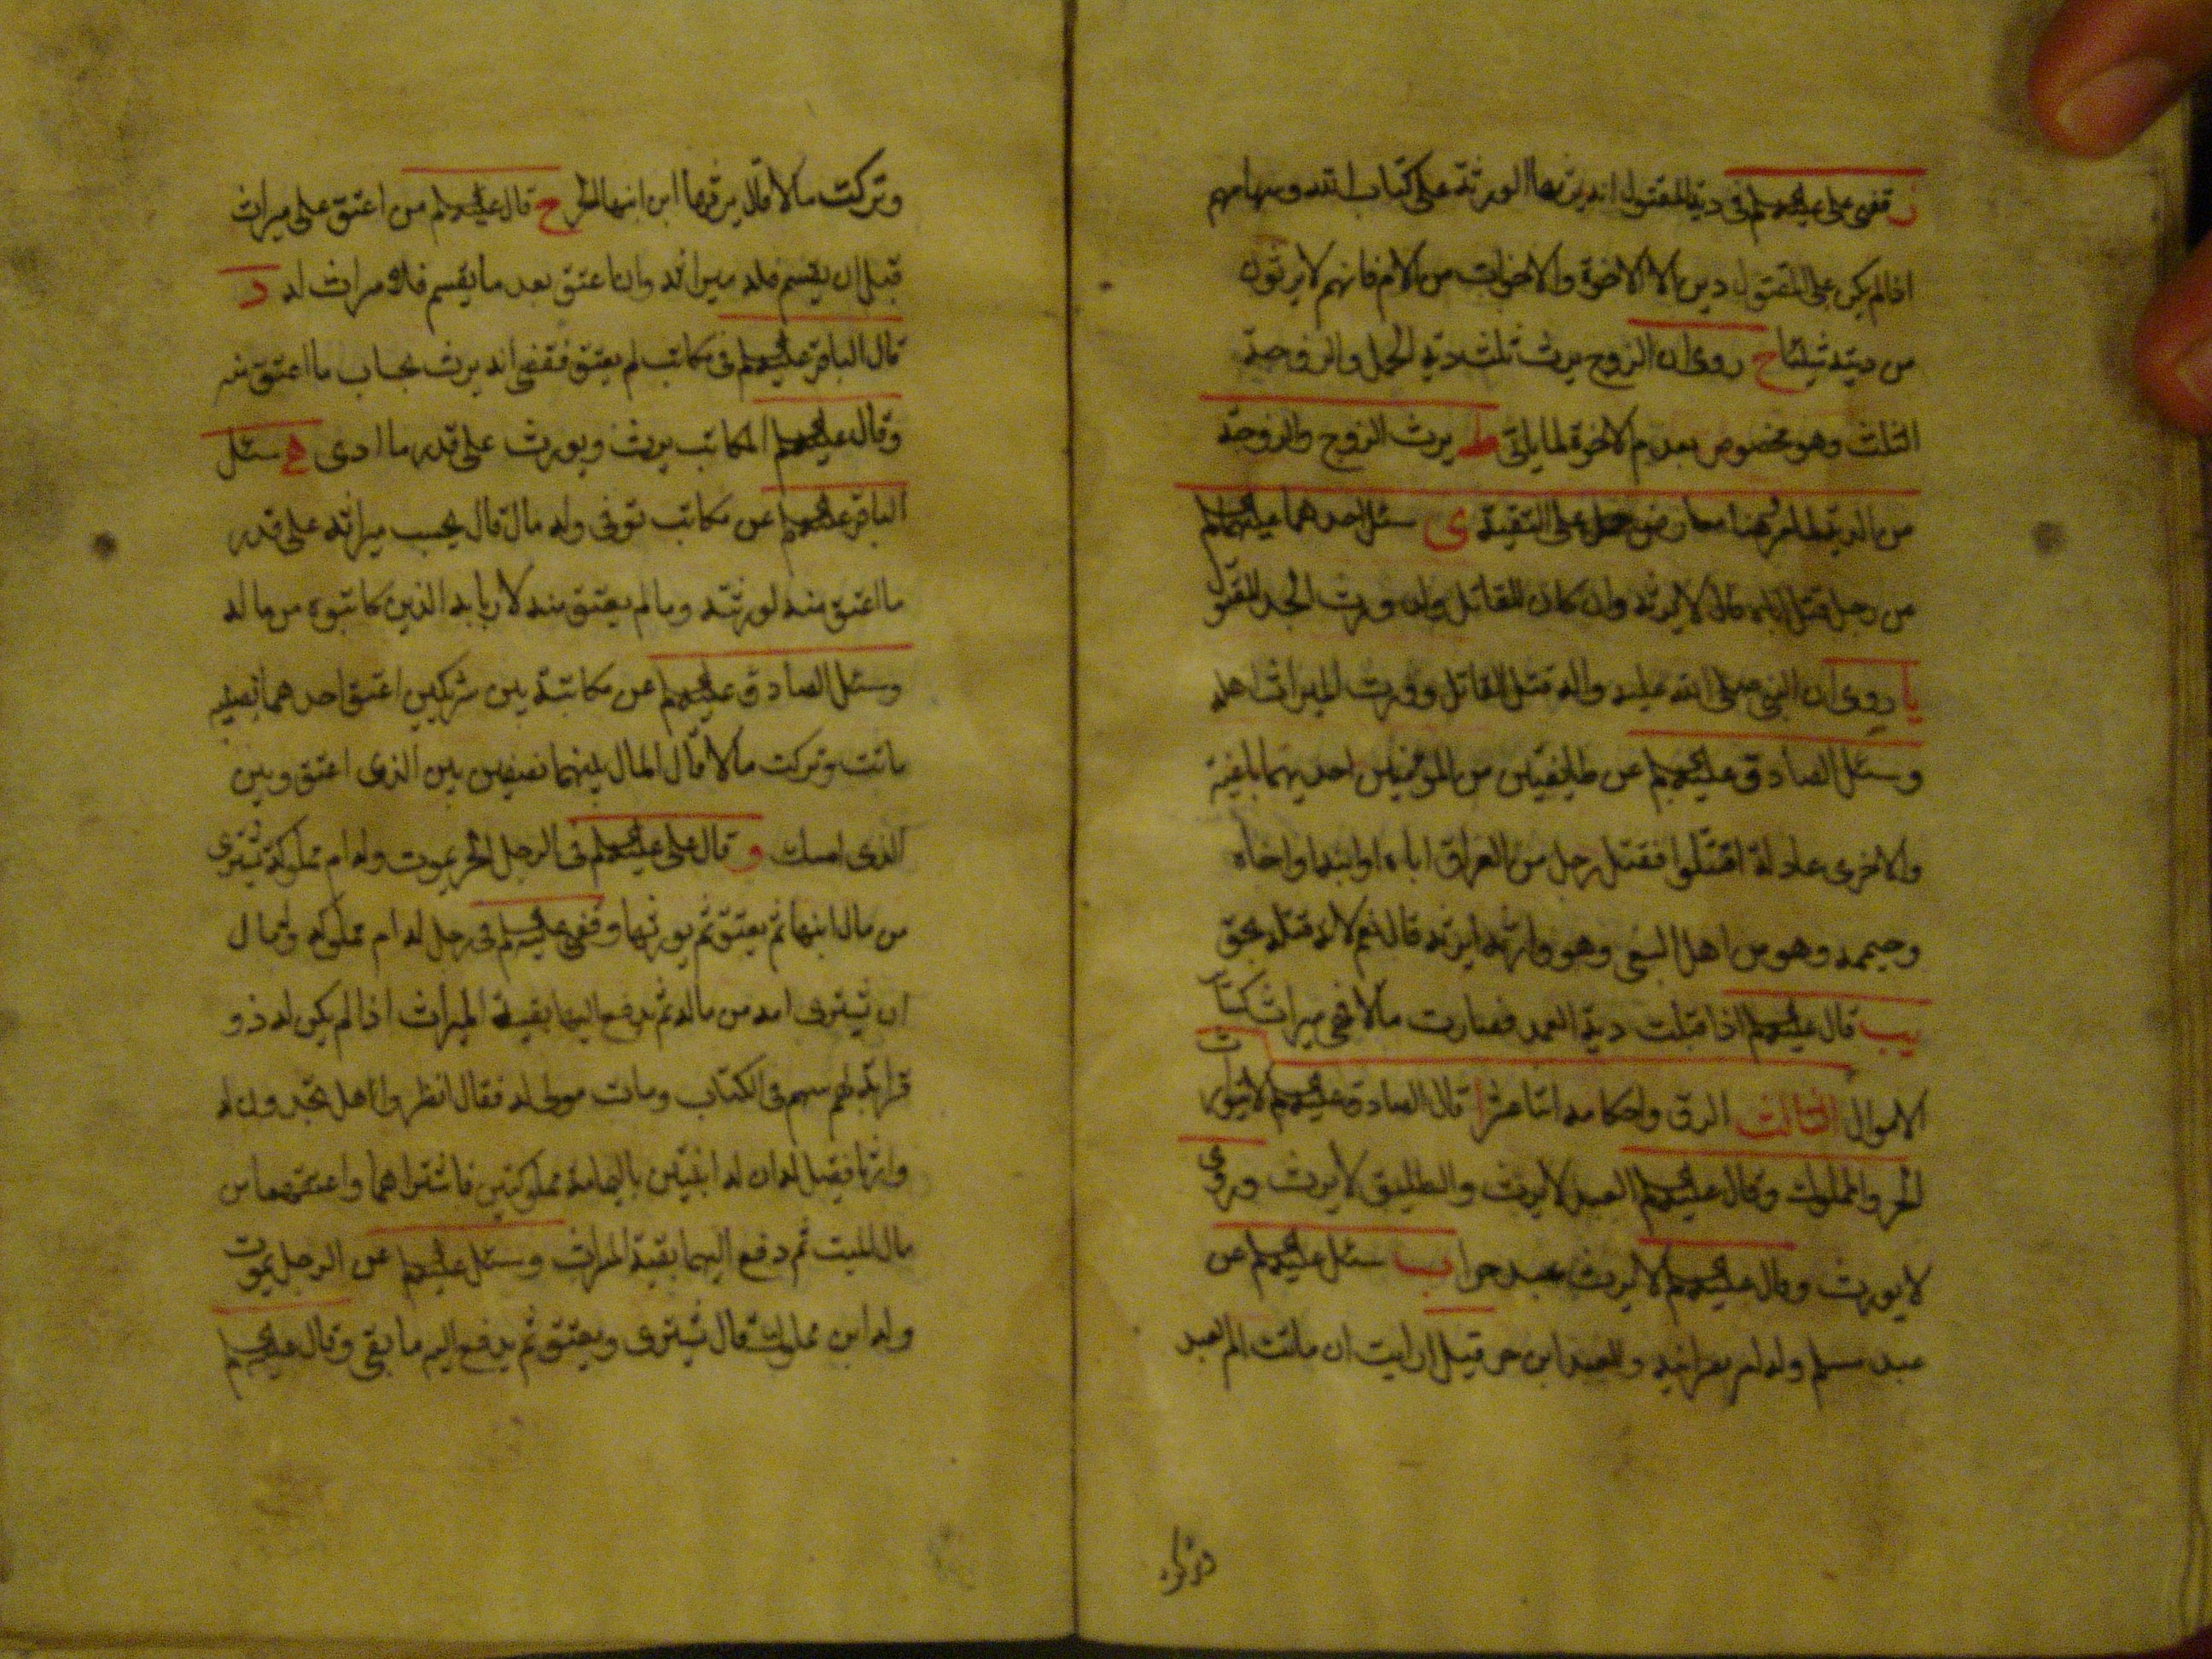 ز قضى على عليه السلم فى دية المقتول انه يرثها الورثة على كتاب الله وسهامهم
اذا لم يكن على المقتول دين الا الاخوة والاخوات من الام فانهم لا يرثون
من ديته شيئا ح روى ان الزوج يرث ثلث دية الحمل والزوجة
الثلث وهو مخصوص بعدم الاخوة لما ياتى ط يرث الزوج والزوجة
من الدية على التقية ى سئل احدهما عليهما السلم
من رجل قتل اباه قال لا يرثه وان كان للقاتل ولد ورث الجد المقتول
يا روى ان النبى صلى الله عليه واله قتل القاتل وورث الميراث اهله
وسئل الصادق عليه السلم عن طايفتين من المؤمنين احديهما باغية
والاخرى عادلة اقتتلوا فقتل رجل من العراق اباه او ابنه او اخاه
وحميمه وهو من اهل البغى وهو وارثه ايرثه قال نعم لانه قتله بحق
يب قال عليه السلم اذا قبلت دية العمد فصارت مالا فهى ميراث كسائر
الاموال الثالث الرق واحكامه اثنا عشر ا قال الصادق عليه السلم لا يتوارث
الحر والمملوك وقال عليه السلم العبد لا يرث والطليق لا يرث وروى
لا يورث وقال عليه السلم لا يرث عبد حرا ب سئل عليه السلم عن
عبد مسلم وله ام نصرانية وللعبد ابن حر قيل ارايت ان ماتت ام العبد
وتركت
وتركت مالا قال يرثها ابن ابنها الحر ج قال عليه السلم من اعتق على ميراث
قبل ان يقسم فله ميراثه وان اعتق بعد ما يقسم فلا ميراث له د
قال الباقر عليه السلم فى مكاتب لم يعتق فقضى انه يرث بحساب ما اعتق منه
وقال عليه السلم المكاتب يرث ويورث على قدر ما ادى ه سئل
الباقر عليه السلم عن مكاتب توفى وله مال قال يحسب ميراثه على قدر
ما اعتق منه لورثته وما لم يعتق منه لاربابه الذين كاتبوه من ماله
وسئل الصادق عليه السلم عن مكاتبة بين شريكين اعتق احدهما نصيبه
ماتت وتركت مالا قال المال بينهما نصفين بين الذى اعتق وبين
الذى امسك و قال على عليه السلم فى الرجل الحر يموت وله ام مملوكة تشترى
من مال ابنها ثم يعتق ثم يورثها وقضى عليه السلم فى رجل له ام مملوكة وله مال
ان تشترى امه من ماله ثم يدفع اليها بقية الميراث اذا لم يكن له ذو
قرابة لهم سهم فى الكتاب ومات مولى له فقال انظروا هل تجدون له
وارثا فقيل له ان له ابنتين باليمامة مملوكتين فاشتراهما واعتقهما من
مال الميت ثم دفع اليهما بقية الميراث وسئل عليه السلم عن الرجل يموت
وله ابن مملوك قال تشترى ويعتق ثم يدفع اليه ما بقى وقال عليه السلم